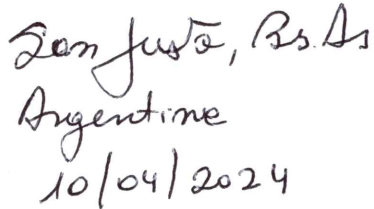 San Justo, Bs. As
Argentina
10/04/2024